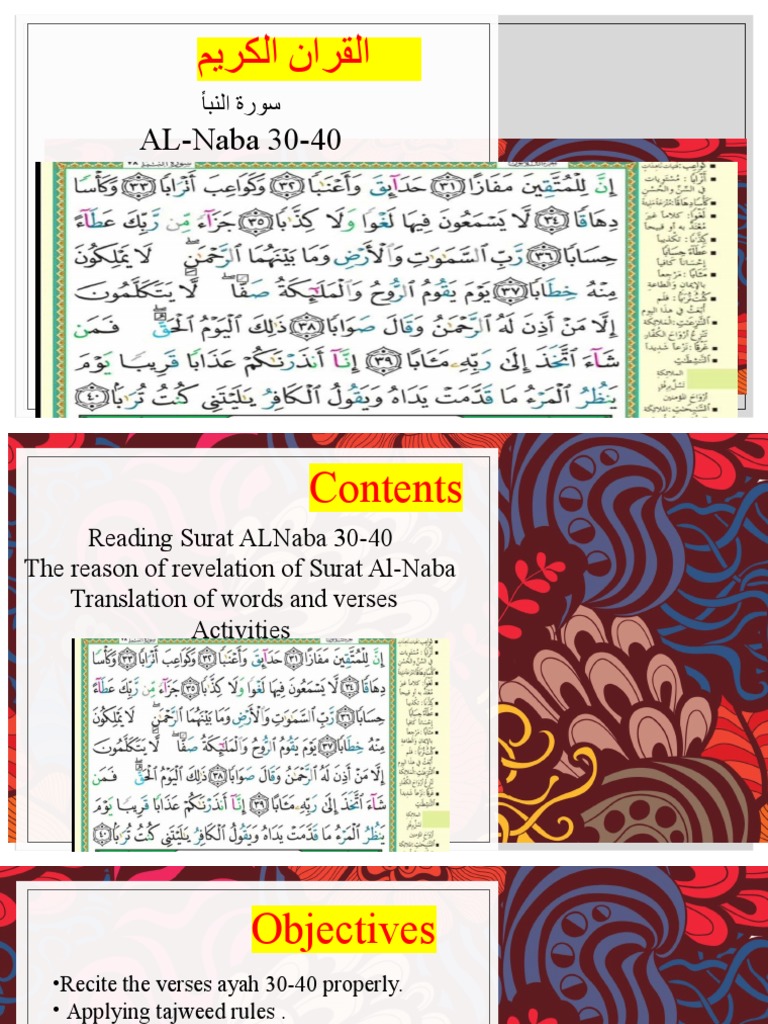 القران الكريم
سورة النبأ
AL-Naba 30-40
إِنَّ لِلْمُتَّقِينَ مَفَازًا ٣١ حَدَآئِقَ وَأَعْنَٰبًا ٣٢ وَكَوَاعِبَ أَتْرَابًا ٣٣ وَكَأْسًا
دِهَاقًا ٣٤ لَّا يَسْمَعُونَ فِيهَا لَغْوًا وَلَا كِذَّٰبًا ٣٥ جَزَآءً مِّن رَّبِّكَ عَطَآءً
حِسَابًا ٣٦ رَّبِّ ٱلسَّمَٰوَٰتِ وَٱلْأَرْضِ وَمَا بَيْنَهُمَا ٱلرَّحْمَٰنِ لَا يَمْلِكُونَ
مِنْهُ خِطَابًا ٣٧ يَوْمَ يَقُومُ ٱلرُّوحُ وَٱلْمَلَٰٓئِكَةُ صَفًّا لَّا يَتَكَلَّمُونَ
إِلَّا مَنْ أَذِنَ لَهُ ٱلرَّحْمَٰنُ وَقَالَ صَوَابًا ٣٨ ذَٰلِكَ ٱلْيَوْمُ ٱلْحَقُّ فَمَن
شَآءَ ٱتَّخَذَ إِلَىٰ رَبِّهِۦ مَـَٔابًا ٣٩ إِنَّآ أَنذَرْنَٰكُمْ عَذَابًا قَرِيبًا يَوْمَ
يَنظُرُ ٱلْمَرْءُ مَا قَدَّمَتْ يَدَاهُ وَيَقُولُ ٱلْكَافِرُ يَٰلَيْتَنِى كُنتُ تُرَٰبًۢا ٤٠
Contents
Reading Surat ALNaba 30-40
The reason of revelation of Surat Al-Naba
Translation of words and verses
Activities
إِنَّ لِلْمُتَّقِينَ مَفَازًا ٣١ حَدَآئِقَ وَأَعْنَٰبًا ٣٢ وَكَوَاعِبَ أَتْرَابًا ٣٣ وَكَأْسًا
دِهَاقًا ٣٤ لَّا يَسْمَعُونَ فِيهَا لَغْوًا وَلَا كِذَّٰبًا ٣٥ جَزَآءً مِّن رَّبِّكَ عَطَآءً
حِسَابًا ٣٦ رَّبِّ ٱلسَّمَٰوَٰتِ وَٱلْأَرْضِ وَمَا بَيْنَهُمَا ٱلرَّحْمَٰنِ لَا يَمْلِكُونَ
مِنْهُ خِطَابًا ٣٧ يَوْمَ يَقُومُ ٱلرُّوحُ وَٱلْمَلَٰٓئِكَةُ صَفًّا لَّا يَتَكَلَّمُونَ
إِلَّا مَنْ أَذِنَ لَهُ ٱلرَّحْمَٰنُ وَقَالَ صَوَابًا ٣٨ ذَٰلِكَ ٱلْيَوْمُ ٱلْحَقُّ فَمَن
شَآءَ ٱتَّخَذَ إِلَىٰ رَبِّهِۦ مَـَٔابًا ٣٩ إِنَّآ أَنذَرْنَٰكُمْ عَذَابًا قَرِيبًا يَوْمَ
يَنظُرُ ٱلْمَرْءُ مَا قَدَّمَتْ يَدَاهُ وَيَقُولُ ٱلْكَافِرُ يَٰلَيْتَنِى كُنتُ تُرَٰبًۢا ٤٠
Objectives
•Recite the verses ayah 30-40 properly.
• Applying tajweed rules .